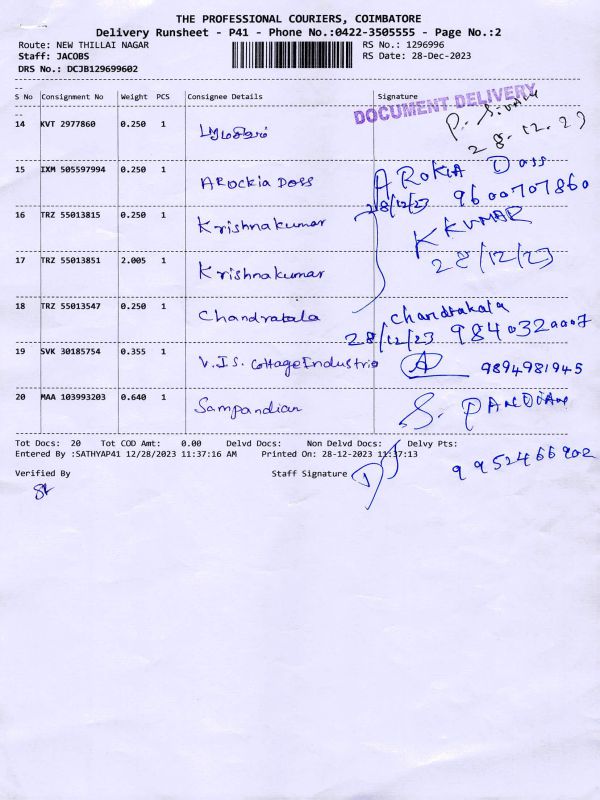 THE PROFESSIONAL COURIERS, COIMBATORE
Delivery Runsheet - P41 - Phone No.:0422-3505555 - Page No.:2
Route: NEW THILLAI NAGAR RS No.: 1296996
Staff: JACOBS RS Date: 28-Dec-2023
DRS No.: DCJB129699602
S No Consignment No Weight PCS Consignee Details Signature
DOCUMENT DELIVERY
14 KVT 2977860 0.250 1 P.
28.12.23
15 IXM 505597994 0.250 1 ARockia Doss AROKIA Dass
28/12/23 9600707860
16 TRZ 55013815 0.250 1 Krishnakumar K KUMAR
28/12/23
17 TRZ 55013851 2.005 1 Krishnakumar
18 TRZ 55013547 0.250 1 Chandrakala Chandrakala
28/12/23 9840320007
19 SVK 30185754 0.355 1 V.IS. Cottage Industrie 9894981945
20 MAA 103993203 0.640 1 Sampandian S. PANDIAN
Tot Docs: 20 Tot COD Amt: 0.00 Delvd Docs: Non Delvd Docs: Delvy Pts:
Entered By :SATHYAP41 12/28/2023 11:37:16 AM Printed On: 28-12-2023 11:37:13
9952466902
Verified By Staff Signature